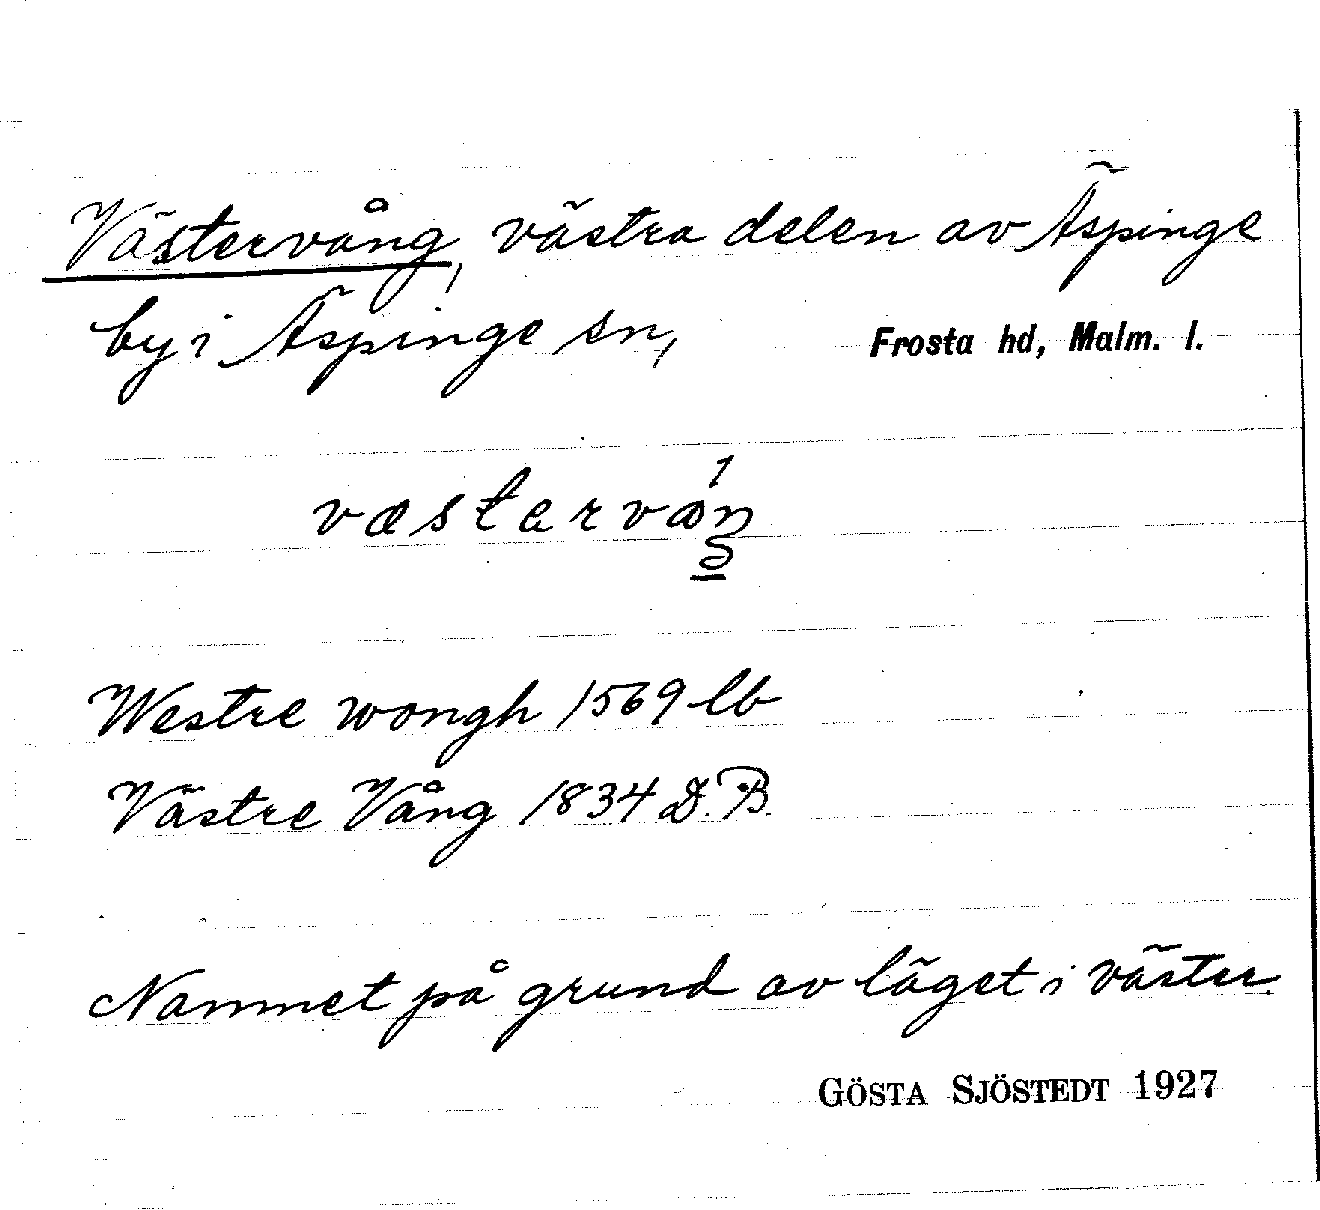 Västervång, västra delen av Äspinge
by i Äspinge sn, Frosta hd, Malm. l.
væstarváŋ
Westre wongh 1569 lb
Västre Vång 1834 D.B.
Namnet på grund av läget i väster.
GÖSTA SJÖSTEDT 1927